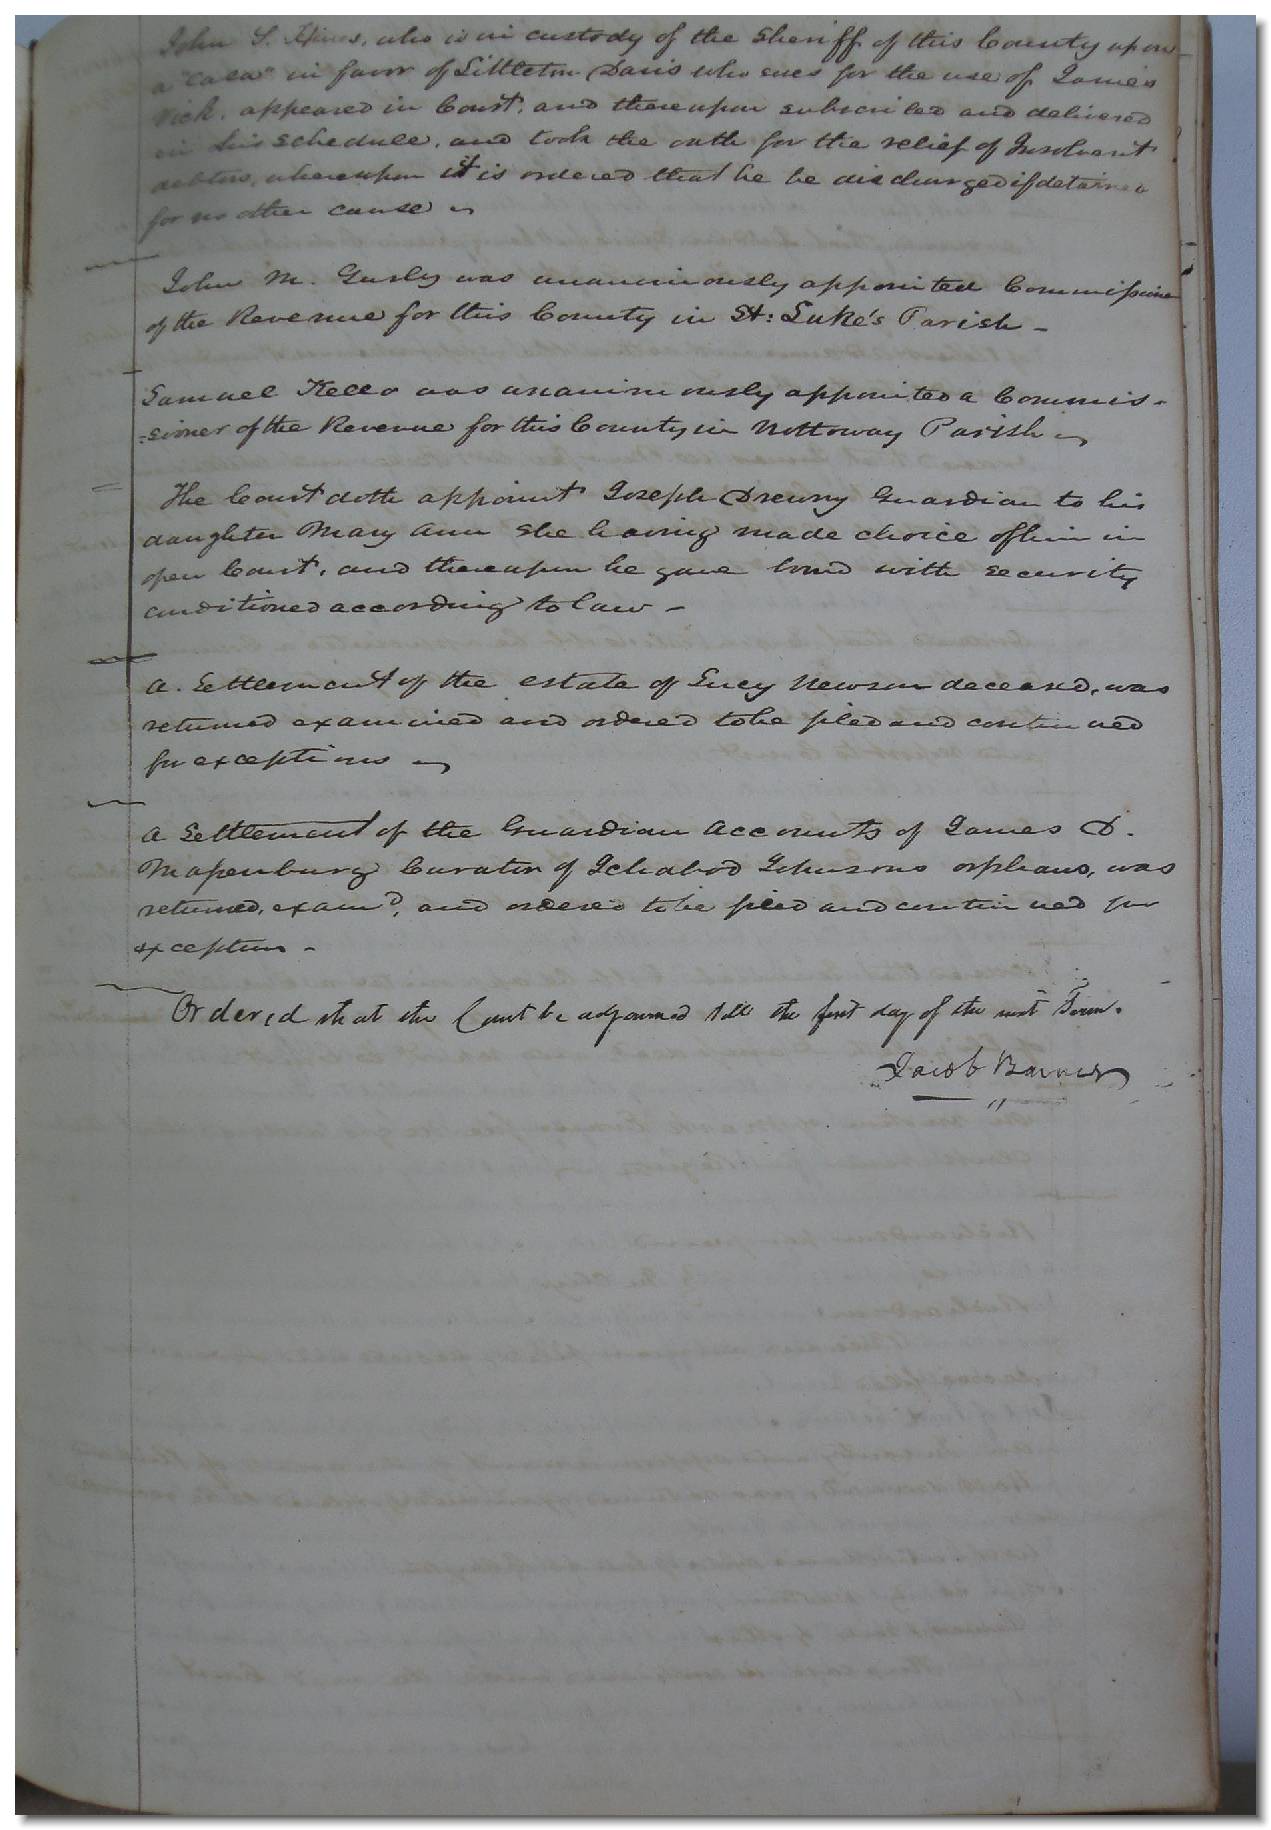 John S. Hines, who is in custody of the Sheriff of this County upon
a "Casa" in favor of Littleton Davis who sues for the use of James
Vick, appeared in Court, and thereupon subscribed and delivered
in his schedule, and took the oath for the relief of Insolvent
debtors, whereupon it is ordered that he be discharged if detained
for no other cause
John M. Gurly was unanimously appointed Commissioner
of the Revenue for this County in St: Luke's Parish -
Samuel Kello was unanimously appointed a Commis-
-sioner of the Revenue for this County in Nottoway Parish
The Court doth appoint Joseph Drewry Guardian to his
daughter Mary Ann she having made choice of him in
open Court, and thereupon he gave bond with security
conditioned according to law -
A Settlement of the estate of Lucy Newsom deceased, was
returned examined and ordered to be filed and continued
for exceptions
A Settlement of the Guardian Accounts of James D.
Massenburg Curator of Ichabod Johnsons orphans, was
returned, examd, and ordered to be filed and continued for
exception -
Ordered that the Court be adjourned till the first day of the next Term.
Jacob Barnes